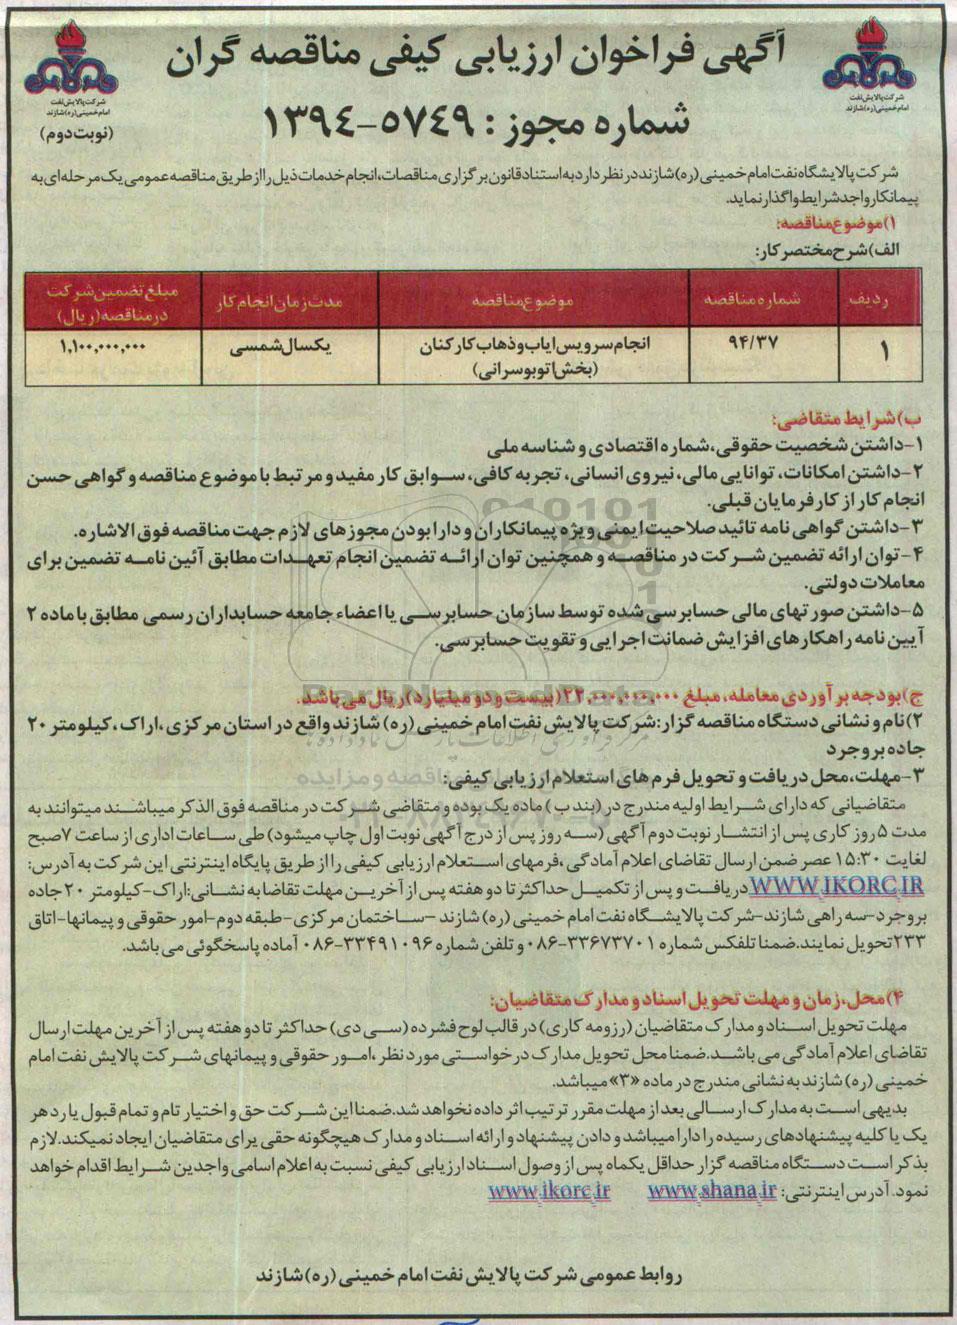 آگهی فراخوان ارزیابی کیفی مناقصه گران
شرکت پالایش نفت
امام خمینی (ره) شازند
شرکت پالایش نفت
امام خمینی (ره) شازند
شماره مجوز : ۵۷۴۹-۱۳۹۴
(نوبت دوم)
شرکت پالایشگاه نفت امام خمینی (ره) شازند در نظر دارد به استناد قانون برگزاری مناقصات، انجام خدمات ذیل را از طریق مناقصه عمومی یک مرحله‌ای به
پیمانکار واجد شرایط واگذار نماید.
۱) موضوع مناقصه:
الف) شرح مختصر کار:
ردیف	شماره مناقصه	موضوع مناقصه	مدت زمان انجام کار	مبلغ تضمین شرکت
در مناقصه (ریال)
۱	۹۴/۳۷	انجام سرویس ایاب و ذهاب کارکنان	یکسال شمسی	۱,۱۰۰,۰۰۰,۰۰۰
(بخش اتوبوسرانی)
ب) شرایط متقاضی:
۱-داشتن شخصیت حقوقی، شماره اقتصادی و شناسه ملی
۲-داشتن امکانات، توانایی مالی، نیروی انسانی، تجربه کافی، سوابق کار مفید و مرتبط با موضوع مناقصه و گواهی حسن
انجام کار از کارفرمایان قبلی.
۳-داشتن گواهی نامه تائید صلاحیت ایمنی ویژه پیمانکاران و دارا بودن مجوزهای لازم جهت مناقصه فوق الاشاره.
۴-توان ارائه تضمین شرکت در مناقصه و همچنین توان ارائه تضمین انجام تعهدات مطابق آئین نامه تضمین برای
معاملات دولتی.
۵-داشتن صورتهای مالی حسابرسی شده توسط سازمان حسابرسی یا اعضاء جامعه حسابداران رسمی مطابق با ماده ۲
آیین نامه راهکارهای افزایش ضمانت اجرایی و تقویت حسابرسی.
ج) بودجه برآوردی معامله، مبلغ ۲۲,۰۰۰,۰۰۰,۰۰۰ (بیست و دو میلیارد) ریال می باشد.
ParsNamadData
۲) نام و نشانی دستگاه مناقصه گزار: شرکت پالایش نفت امام خمینی (ره) شازند واقع در استان مرکزی، اراک، کیلومتر ۲۰
جاده بروجرد
۳-مهلت، محل دریافت و تحویل فرم های استعلام ارزیابی کیفی:
متقاضیانی که دارای شرایط اولیه مندرج در (بند ب) ماده یک بوده و متقاضی شرکت در مناقصه فوق الذکر میباشند میتوانند به
مدت ۵ روز کاری پس از انتشار نوبت دوم آگهی (سه روز پس از درج آگهی نوبت اول چاپ میشود) طی ساعات اداری از ساعت ۷ صبح
لغایت ۱۵:۳۰ عصر ضمن ارسال تقاضای اعلام آمادگی، فرمهای استعلام ارزیابی کیفی را از طریق پایگاه اینترنتی این شرکت به آدرس:
WWW.IKORC.IR دریافت و پس از تکمیل حداکثر تا دو هفته پس از آخرین مهلت تقاضا به نشانی: اراک-کیلومتر ۲۰ جاده
بروجرد-سه راهی شازند-شرکت پالایشگاه نفت امام خمینی (ره) شازند-ساختمان مرکزی-طبقه دوم-امور حقوقی و پیمانها-اتاق
۲۳۳ تحویل نمایند. ضمنا تلفکس شماره ۳۳۶۷۳۷۰۱-۰۸۶ و تلفن شماره ۳۳۴۹۱۰۹۶-۰۸۶ آماده پاسخگوئی می باشد.
۴) محل، زمان و مهلت تحویل اسناد و مدارک متقاضیان:
مهلت تحویل اسناد و مدارک متقاضیان (رزومه کاری) در قالب لوح فشرده (سی دی) حداکثر تا دو هفته پس از آخرین مهلت ارسال
تقاضای اعلام آمادگی می باشد. ضمنا محل تحویل مدارک درخواستی مورد نظر، امور حقوقی و پیمانهای شرکت پالایش نفت امام
خمینی (ره) شازند به نشانی مندرج در ماده «۳» میباشد.
بدیهی است به مدارک ارسالی بعد از مهلت مقرر ترتیب اثر داده نخواهد شد. ضمنا این شرکت حق و اختیار تام و تمام قبول یا رد هر
یک یا کلیه پیشنهادهای رسیده را دارا میباشد و دادن پیشنهاد و ارائه اسناد و مدارک هیچگونه حقی برای متقاضیان ایجاد نمیکند. لازم
بذکر است دستگاه مناقصه گزار حداقل یکماه پس از وصول اسناد ارزیابی کیفی نسبت به اعلام اسامی واجدین شرایط اقدام خواهد
نمود. آدرس اینترنتی: www.shana.ir www.ikorc.ir
روابط عمومی شرکت پالایش نفت امام خمینی (ره) شازند